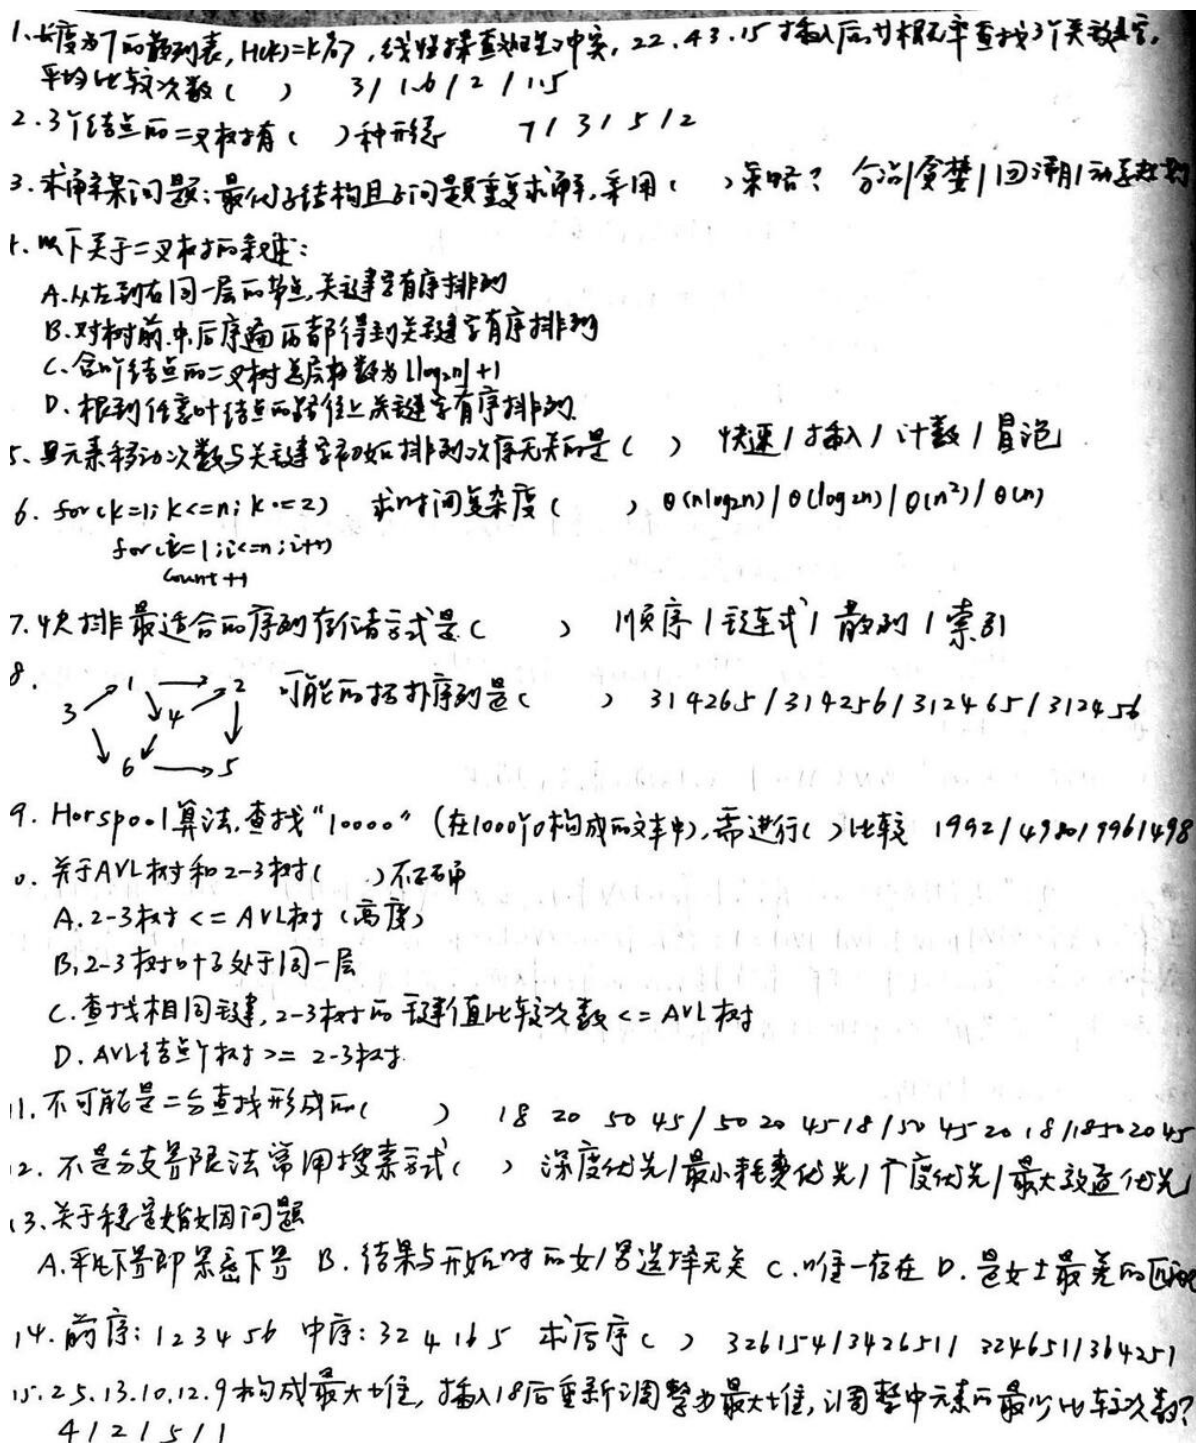 1.长度为7的散列表,H(k)=k%7,线性探查处理冲突,22.43.15插入后等概率查找3个关键字,
平均比较次数( ) 3/1.6/2/1.5
2.3个结点的二叉树有( )种形态 7/3/5/2
3.求解某问题:最优子结构且子问题重复求解,采用( )策略? 分治/贪婪/回溯/动态规划
以下关于二叉树的叙述:
A.从左到右同一层的节点,关键字有序排列
B.对树前.中.后序遍历都得到关键字有序排列
C.含n个结点的二叉树总层数为⌊log₂n⌋+1
D.根到任意叶结点的路径上关键字有序排列.
5.且元素移动次数与关键字初始排列次序无关的是( ) 快速/插入/计数/冒泡
6. for(k=1;k<=n;k*=2) 求时间复杂度( ) θ(nlog2n)/θ(log2n)/θ(n²)/θ(n)
for(i=1;i<=n;i++)
count++
7.快排最适合的序列存储方式是( ) 顺序/链式/散列/索引
8. 1 2 可能的拓扑序列是( ) 314265/314256/312465/312456
3 4
6 5
9. Horspool算法,查找"10000"(在1000个0构成的文本中),需进行( )比较 1992/4980/996/498
0. 关于AVL树和2-3树( )不正确
A.2-3树<=AVL树(高度)
B,2-3树叶子处于同一层
C.查找相同键,2-3树的键值比较次数<=AVL树
D.AVL结点个数>=2-3树.
11.不可能是二分查找形成的( ) 18 20 50 45/50 20 45 18/50 45 20 18/18 50 20 45
12. 不是分支界限法常用搜索方式( ) 深度优先/最小耗费优先/广度优先/最大效益优先
13.关于稳定婚姻问题
A.平凡下界即紧密下界 B.结果与开始时的女/男选择无关 C.唯一存在 D.是女士最差的匹配
14.前序:123456 中序:324165 求后序( ) 326154/342651/324651/364251
15.25.13.10.12.9构成最大堆,插入18后重新调整为最大堆,调整中元素的最少比较次数?
4/2/5/1